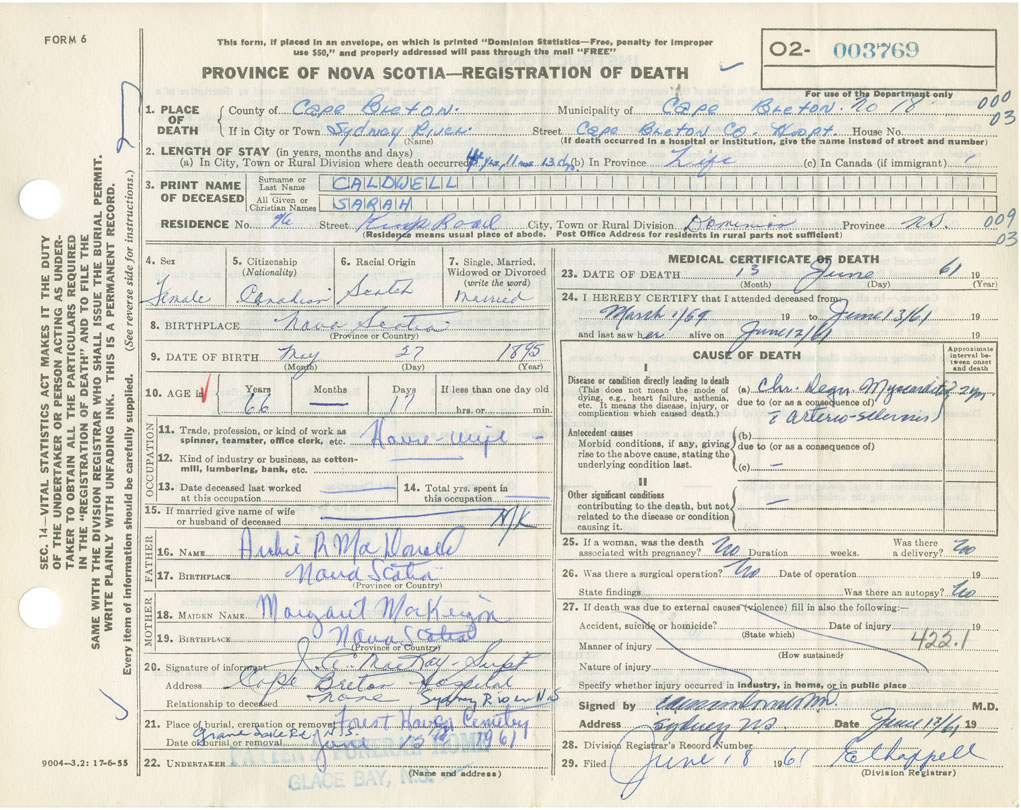 FORM 6
This form, if placed in an envelope, on which is printed "Dominion Statistics—Free, penalty for improper
use $50," and properly addressed will pass through the mail "FREE"
O2- 003769
PROVINCE OF NOVA SCOTIA—REGISTRATION OF DEATH
For use of the Department only
1. PLACE OF DEATH County of Cape Breton Municipality of Cape Breton. No 18 000
If in City or Town Sydney River Street Cape Breton Co. Hospt. House No. 03
(Name) (If death occurred in a hospital or institution, give the name instead of street and number)
2. LENGTH OF STAY (in years, months and days)
(a) In City, Town or Rural Division where death occurred 4 yrs, 11 mos 13 dys (b) In Province Life (c) In Canada (if immigrant)
3. PRINT NAME OF DECEASED Surname or Last Name CALDWELL
All Given or Christian Names SARAH
RESIDENCE No. 96 Street King Road City, Town or Rural Division Dominion Province N.S. 009
(Residence means usual place of abode. Post Office Address for residents in rural parts not sufficient) 03
4. Sex 5. Citizenship (Nationality) 6. Racial Origin 7. Single, Married, Widowed or Divorced (write the word)
Female Canadian Scotch Married
8. BIRTHPLACE Nova Scotia
(Province or Country)
9. DATE OF BIRTH May 27 1895
(Month) (Day) (Year)
10. AGE in Years Months Days If less than one day old
66 — 17 hrs. or min.
OCCUPATION
11. Trade, profession, or kind of work as spinner, teamster, office clerk, etc. House-wife —
12. Kind of industry or business, as cotton-mill, lumbering, bank, etc.
13. Date deceased last worked at this occupation 14. Total yrs. spent in this occupation
15. If married give name of wife or husband of deceased N/K
FATHER
16. NAME Archie R MacDonald
17. BIRTHPLACE Nova Scotia
(Province or Country)
MOTHER
18. MAIDEN NAME Margaret MacKenzie
19. BIRTHPLACE Nova Scotia
(Province or Country)
20. Signature of informant J. A. MacKay - Supt
Address Cape Breton Hospital
Relationship to deceased none Sydney River N.S
21. Place of burial, cremation or removal Forest Haven Cemetery
Grand Lake Rd, N.S.
Date of burial or removal June 1961
22. UNDERTAKER PATTEN FUNERAL HOME
GLACE BAY, N.S.
(Name and address)
9004—3.2: 17-6-55
MEDICAL CERTIFICATE OF DEATH
23. DATE OF DEATH 13 June 61 19
(Month) (Day) (Year)
24. I HEREBY CERTIFY that I attended deceased from
March 1/59 19 to June 13/61 19
and last saw her alive on June 12/61 19
CAUSE OF DEATH
Approximate interval between onset and death
I
Disease or condition directly leading to death
(This does not mean the mode of dying, e.g., heart failure, asthenia, etc. It means the disease, injury, or complication which caused death.)
(a) Chr. Degn. Myocarditis 2 yrs
due to (or as a consequence of)
Arterio-sclerosis
Antecedent causes
Morbid conditions, if any, giving rise to the above cause, stating the underlying condition last.
(b)
due to (or as a consequence of)
(c) —
II
Other significant conditions
contributing to the death, but not related to the disease or condition causing it.
—
25. If a woman, was the death associated with pregnancy? No Duration weeks. Was there a delivery? No
26. Was there a surgical operation? No Date of operation 19
State findings Was there an autopsy? No
27. If death was due to external causes (violence) fill in also the following:—
Accident, suicide or homicide? Date of injury 19
(State which)
422.1
Manner of injury
(How sustained)
Nature of injury
Specify whether injury occurred in industry, in home, or in public place
Signed by M.D.
Address Sydney N.S. Date June 13/61 19
28. Division Registrar's Record Number
29. Filed June 18 1961
(Division Registrar)
SEC. 14—VITAL STATISTICS ACT MAKES IT THE DUTY
OF THE UNDERTAKER OR PERSON ACTING AS UNDER-
TAKER TO OBTAIN ALL THE PARTICULARS REQUIRED
IN THE "REGISTRATION OF DEATH" AND TO FILE THE
SAME WITH THE DIVISION REGISTRAR WHO SHALL ISSUE THE BURIAL PERMIT.
WRITE PLAINLY WITH UNFADING INK. THIS IS A PERMANENT RECORD.
Every item of information should be carefully supplied. (See reverse side for instructions.)